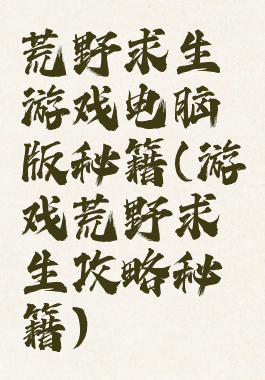 荒野求生
游戏电脑
版秘籍(游
戏荒野求
生攻略秘
籍)